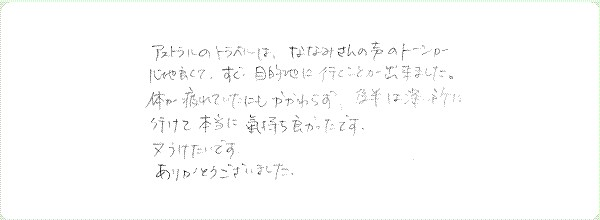 アストラルのトラベルは、ななみさんの声のトーンが
心地良くて、すぐ目的地に行くことが出来ました。
体が疲れていたにもかかわらず、後半は深い所に
行けて本当に氣持ち良かったです。
又うけたいです
ありがとうございました。